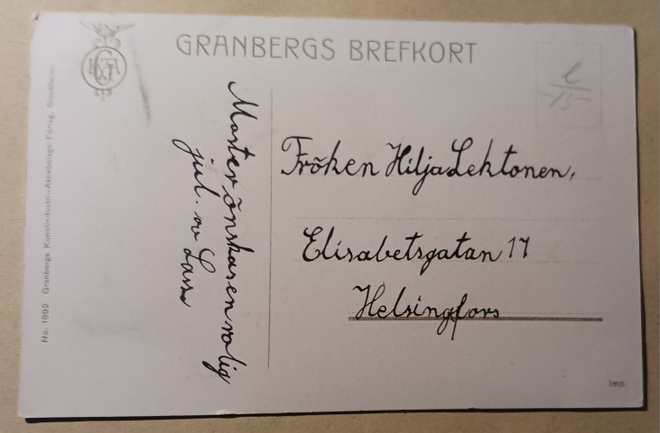 GRANBERGS BREFKORT
No. 1892 Granbergs Konstindustri-Aktiebolags Förlag, Stockholm.
Moster önskasen rolig
jul. av Lassa
Fröken Hilja Lektonen,
Elisabetsgatan 17
Helsingfors
Impr.